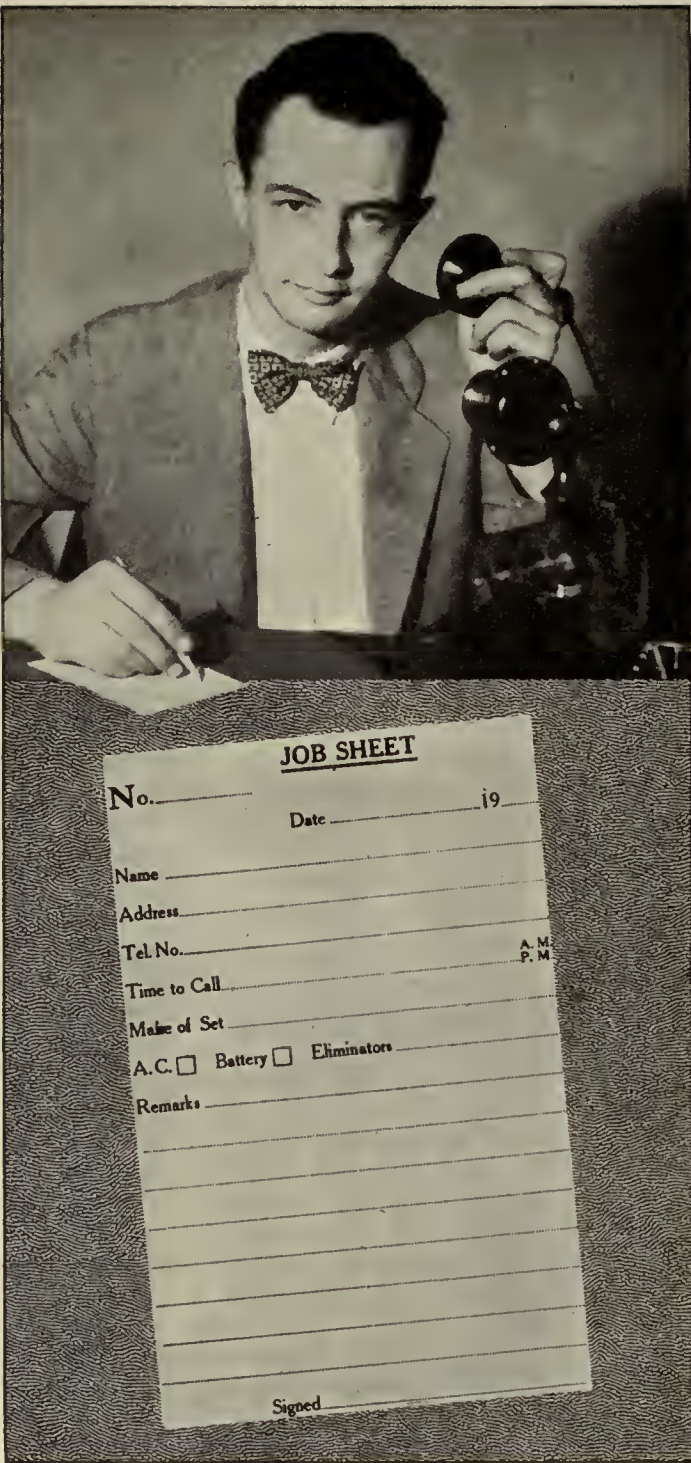 JOB SHEET
No.
Date 19
Name
Address
Tel. No.
A. M.
Time to Call P. M.
Make of Set
A. C. Battery Eliminators
Remarks
Signed